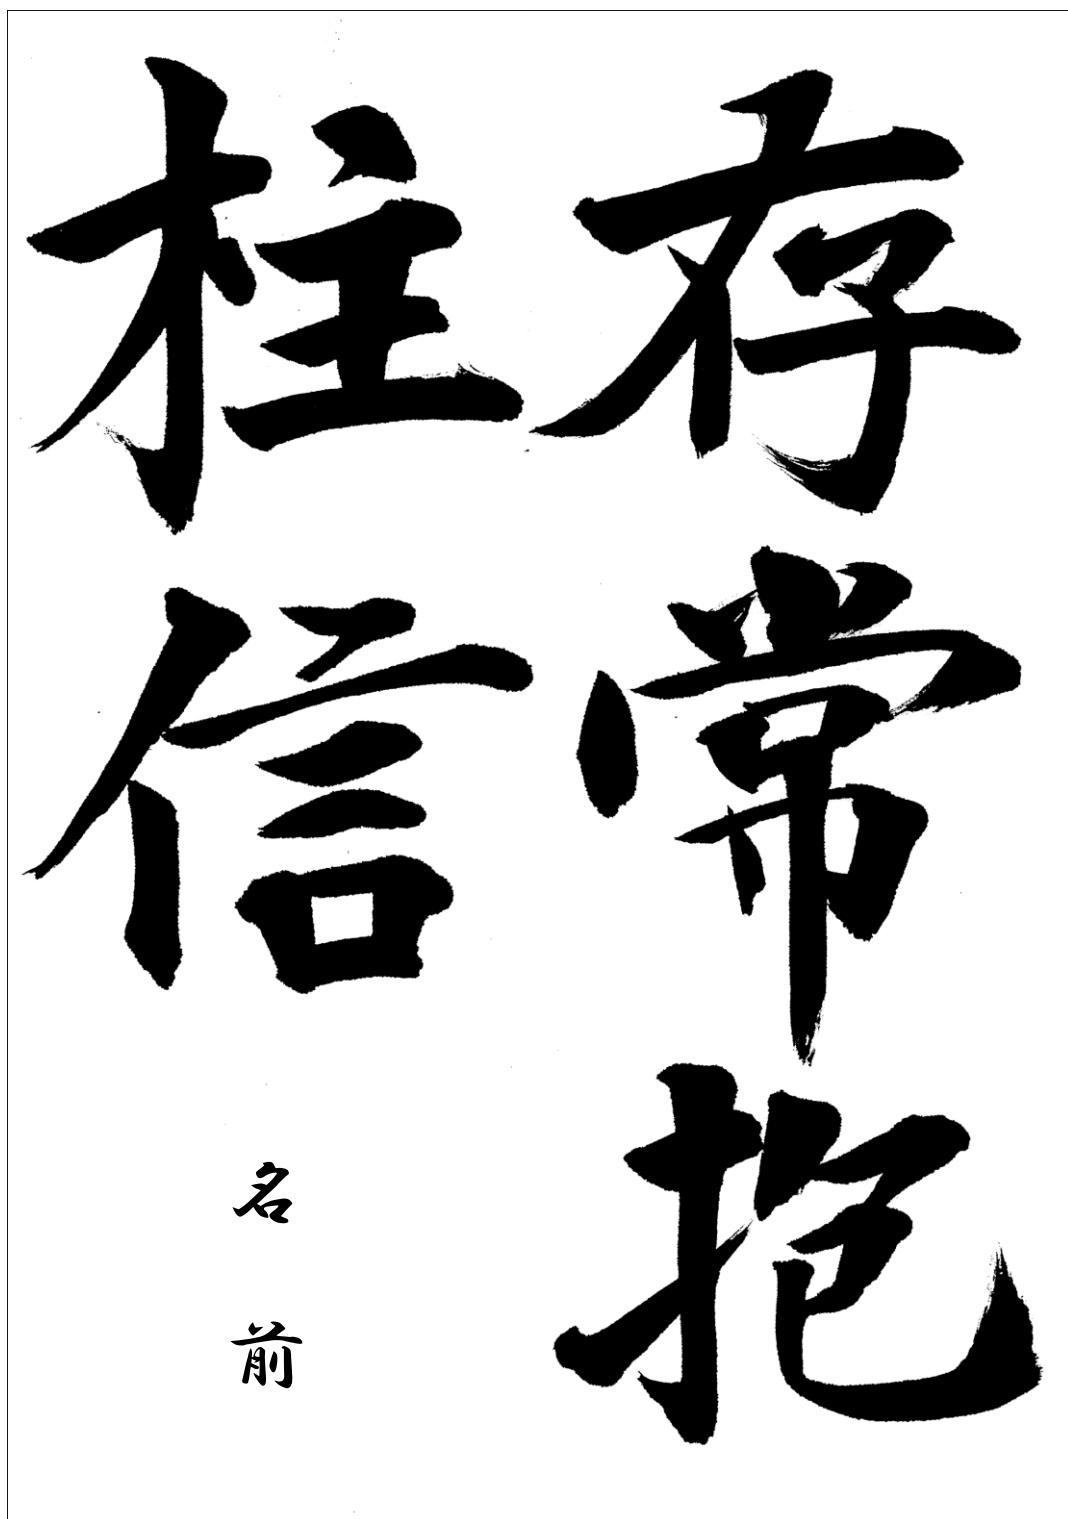 存常抱
柱信
名前